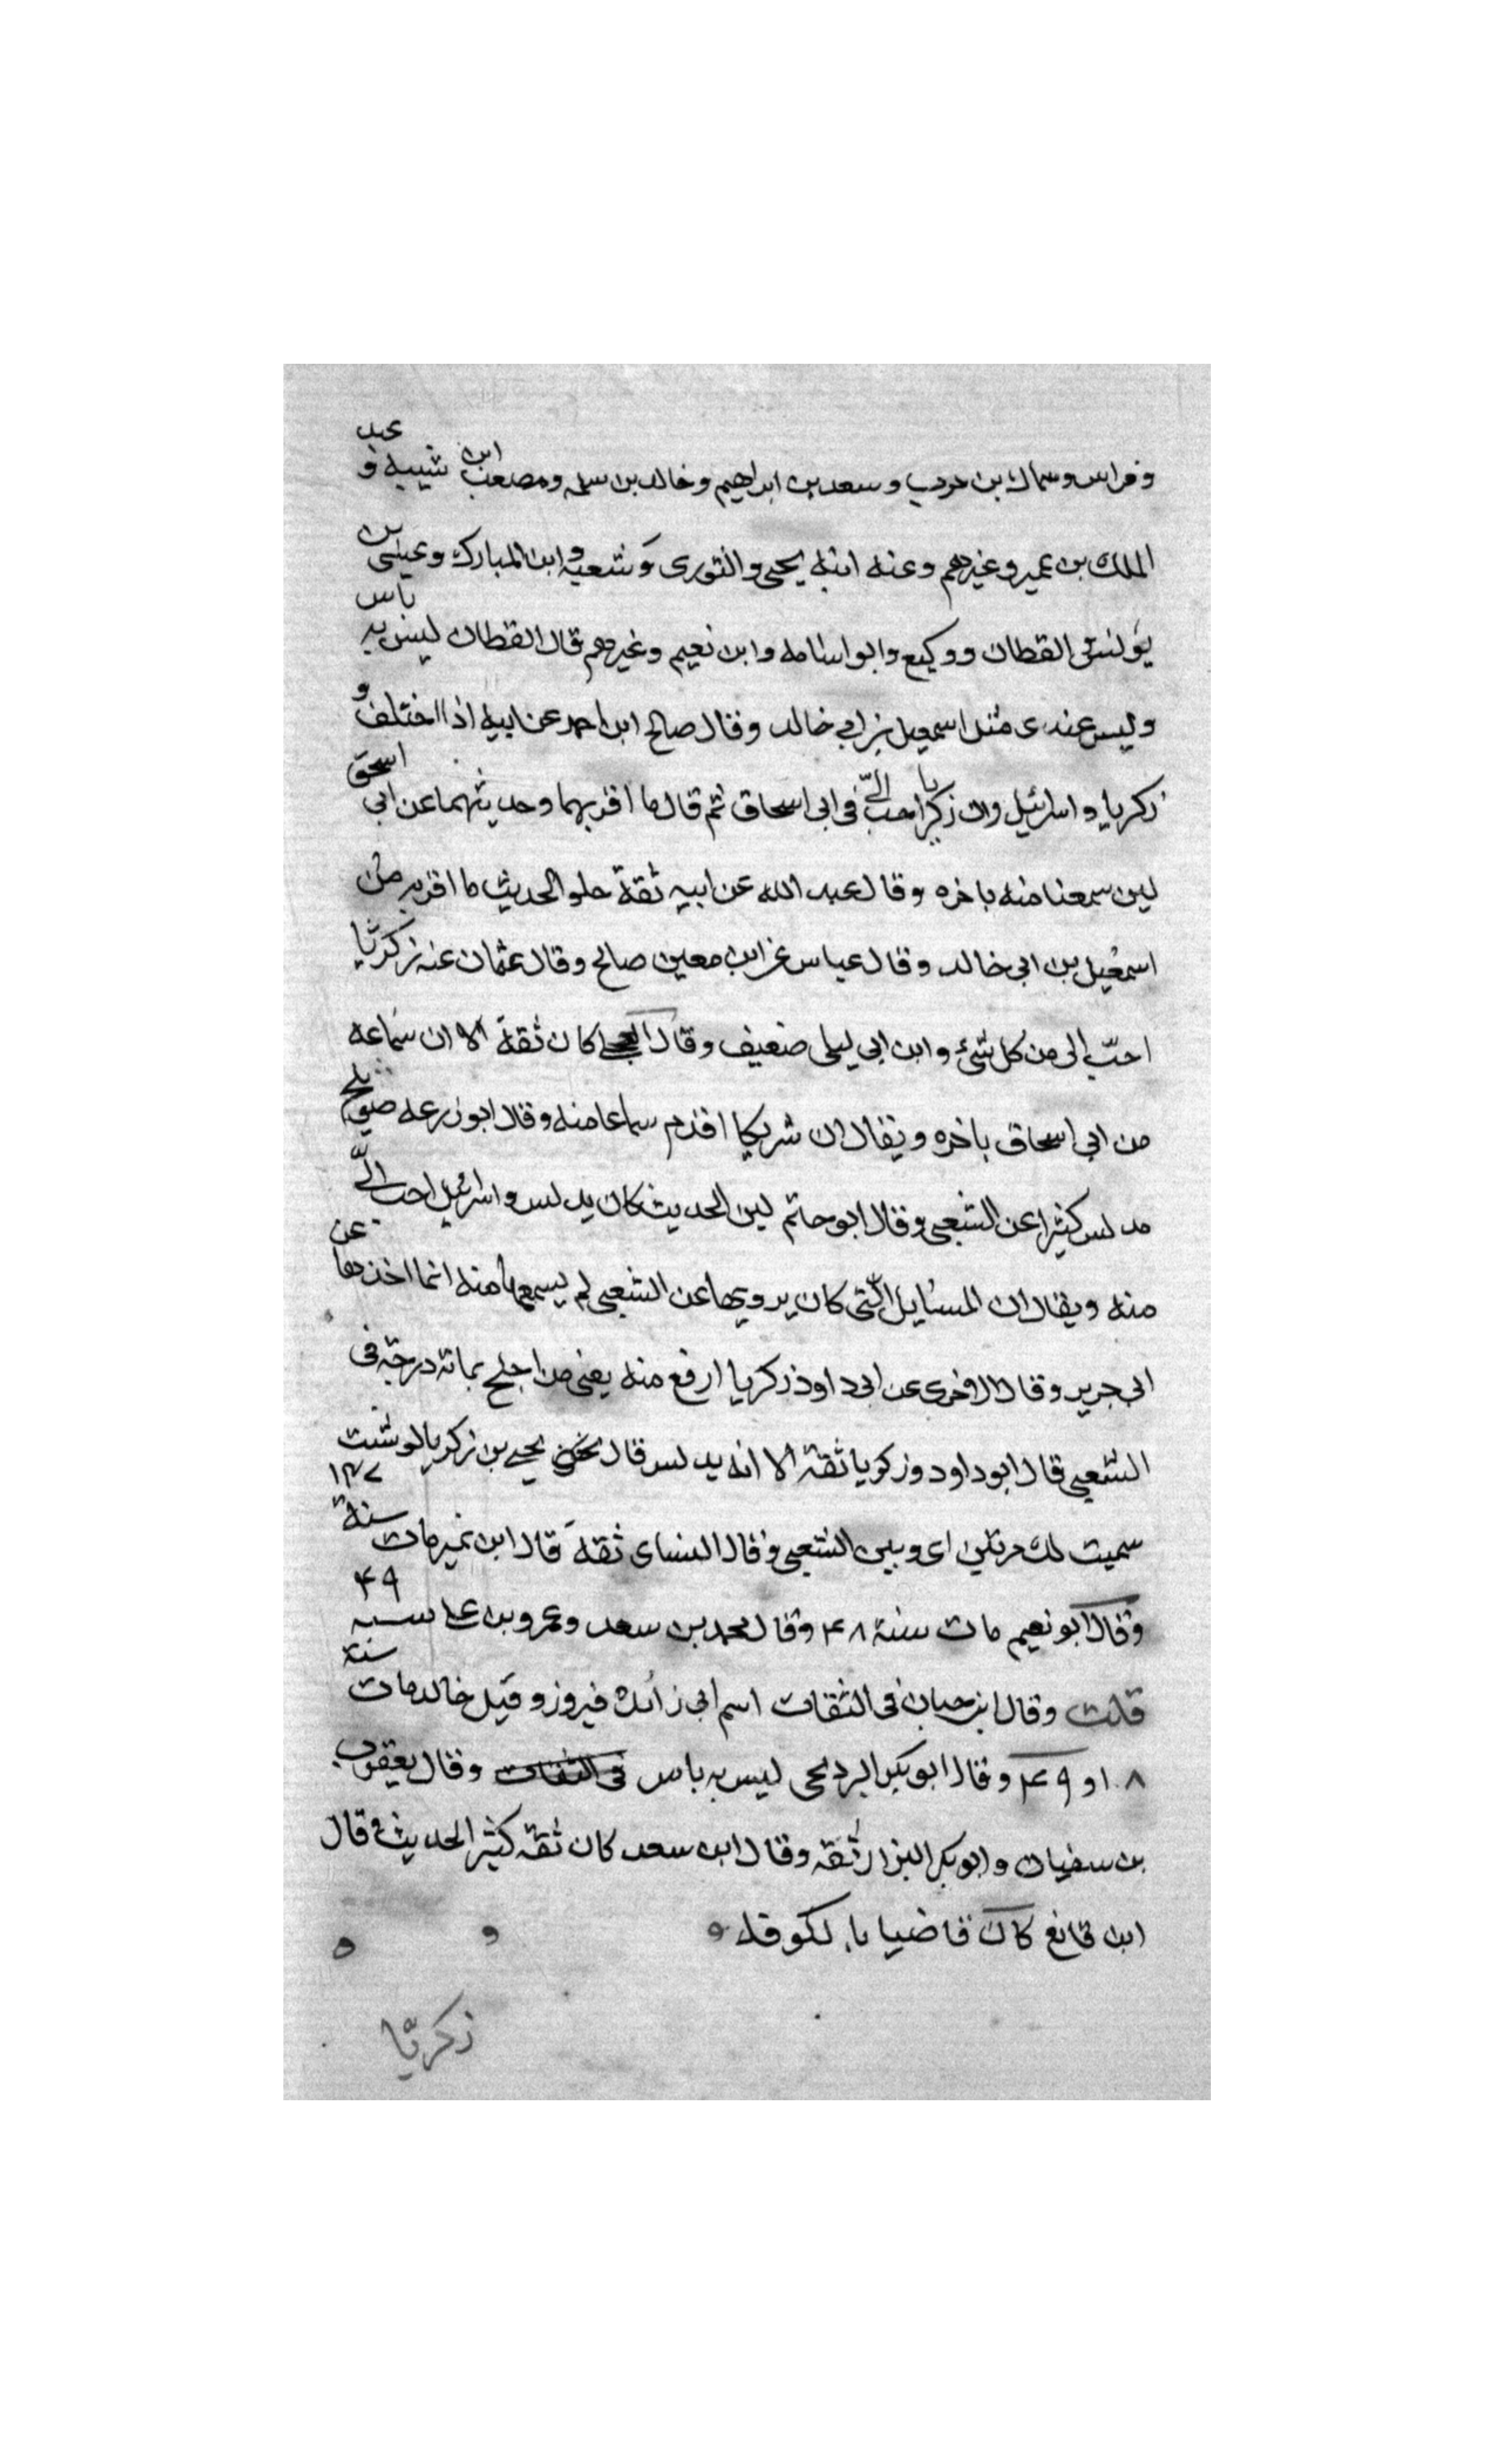 وفراس وسماك بن حرب وسعد بن ابراهيم وخالد بن سلمه ومصعب ابن شيبه و عبد
الملك بن عمير وغيرهم وعنه ابنه يحيى والثورى وشعبه وابن المبارك وعيسى بن
يونس القطان ووكيع وابو اسامه وابن نعيم وغيرهم قال القطان ليس به باس
وليس عندى مثل اسمعيل بن ابي خالد وقال صالح ابن احمد عن ابيه اذا اختلف و
زكريا و اسرائيل وان زكريا احب الىّ فى ابى اسحاق ثم قال ما اقربهما وحديثهما عن ابى اسحق
لين سمعنا منه باخره وقال عبد الله عن ابيه ثقة حلو الحديث ما اقربه من
اسمعيل بن ابى خالد وقال عباس عن ابن معين صالح وقال عثمان عنه زكريا
احبّ الى من كل شئ وابن ابى ليلى ضعيف وقال العجلى كان ثقة الا ان سماعه
من ابى اسحاق باخره ويقال ان شريكا اقدم سماعا منه وقال ابو زرعه صويلح
مدلس كثيرا عن الشعبى وقال ابو حاتم لين الحديث كان يدلس واسرائيل احب الىّ
منه ويقال ان المسايل الّتى كان يرويها عن الشعبى لم يسمعها منه انما اخذها عن
ابى جرير وقال الاخرى عن ابى داود زكريا ارفع منه يعنى من اجلح بمائة درجة فى
الشعبى قال ابو داود وزكريا ثقة الا انه يدلس قال يحيى بن زكريا لو شئت
سميت لك من بينى اى وبين الشعبى وقال النساى ثقة قال ابن نمير مات سنة ١٤٧
وقال ابو نعيم مات سنة ٤٨ وقال محمد بن سعد وعمرو بن على سنه ٤٩
قلت وقال ابن حبان فى الثقات اسم ابى زائده فيروز وقيل خالد مات سنة
٨ او ٤٩ وقال ابو بكر البرديحى ليس به باس فى الثقات وقال يعقوب
بن سفيان وابو بكر البزار ثقه وقال ابن سعد كان ثقة كثير الحديث وقال
ابن قانع كان قاضيا بالكوفه
زكريّا